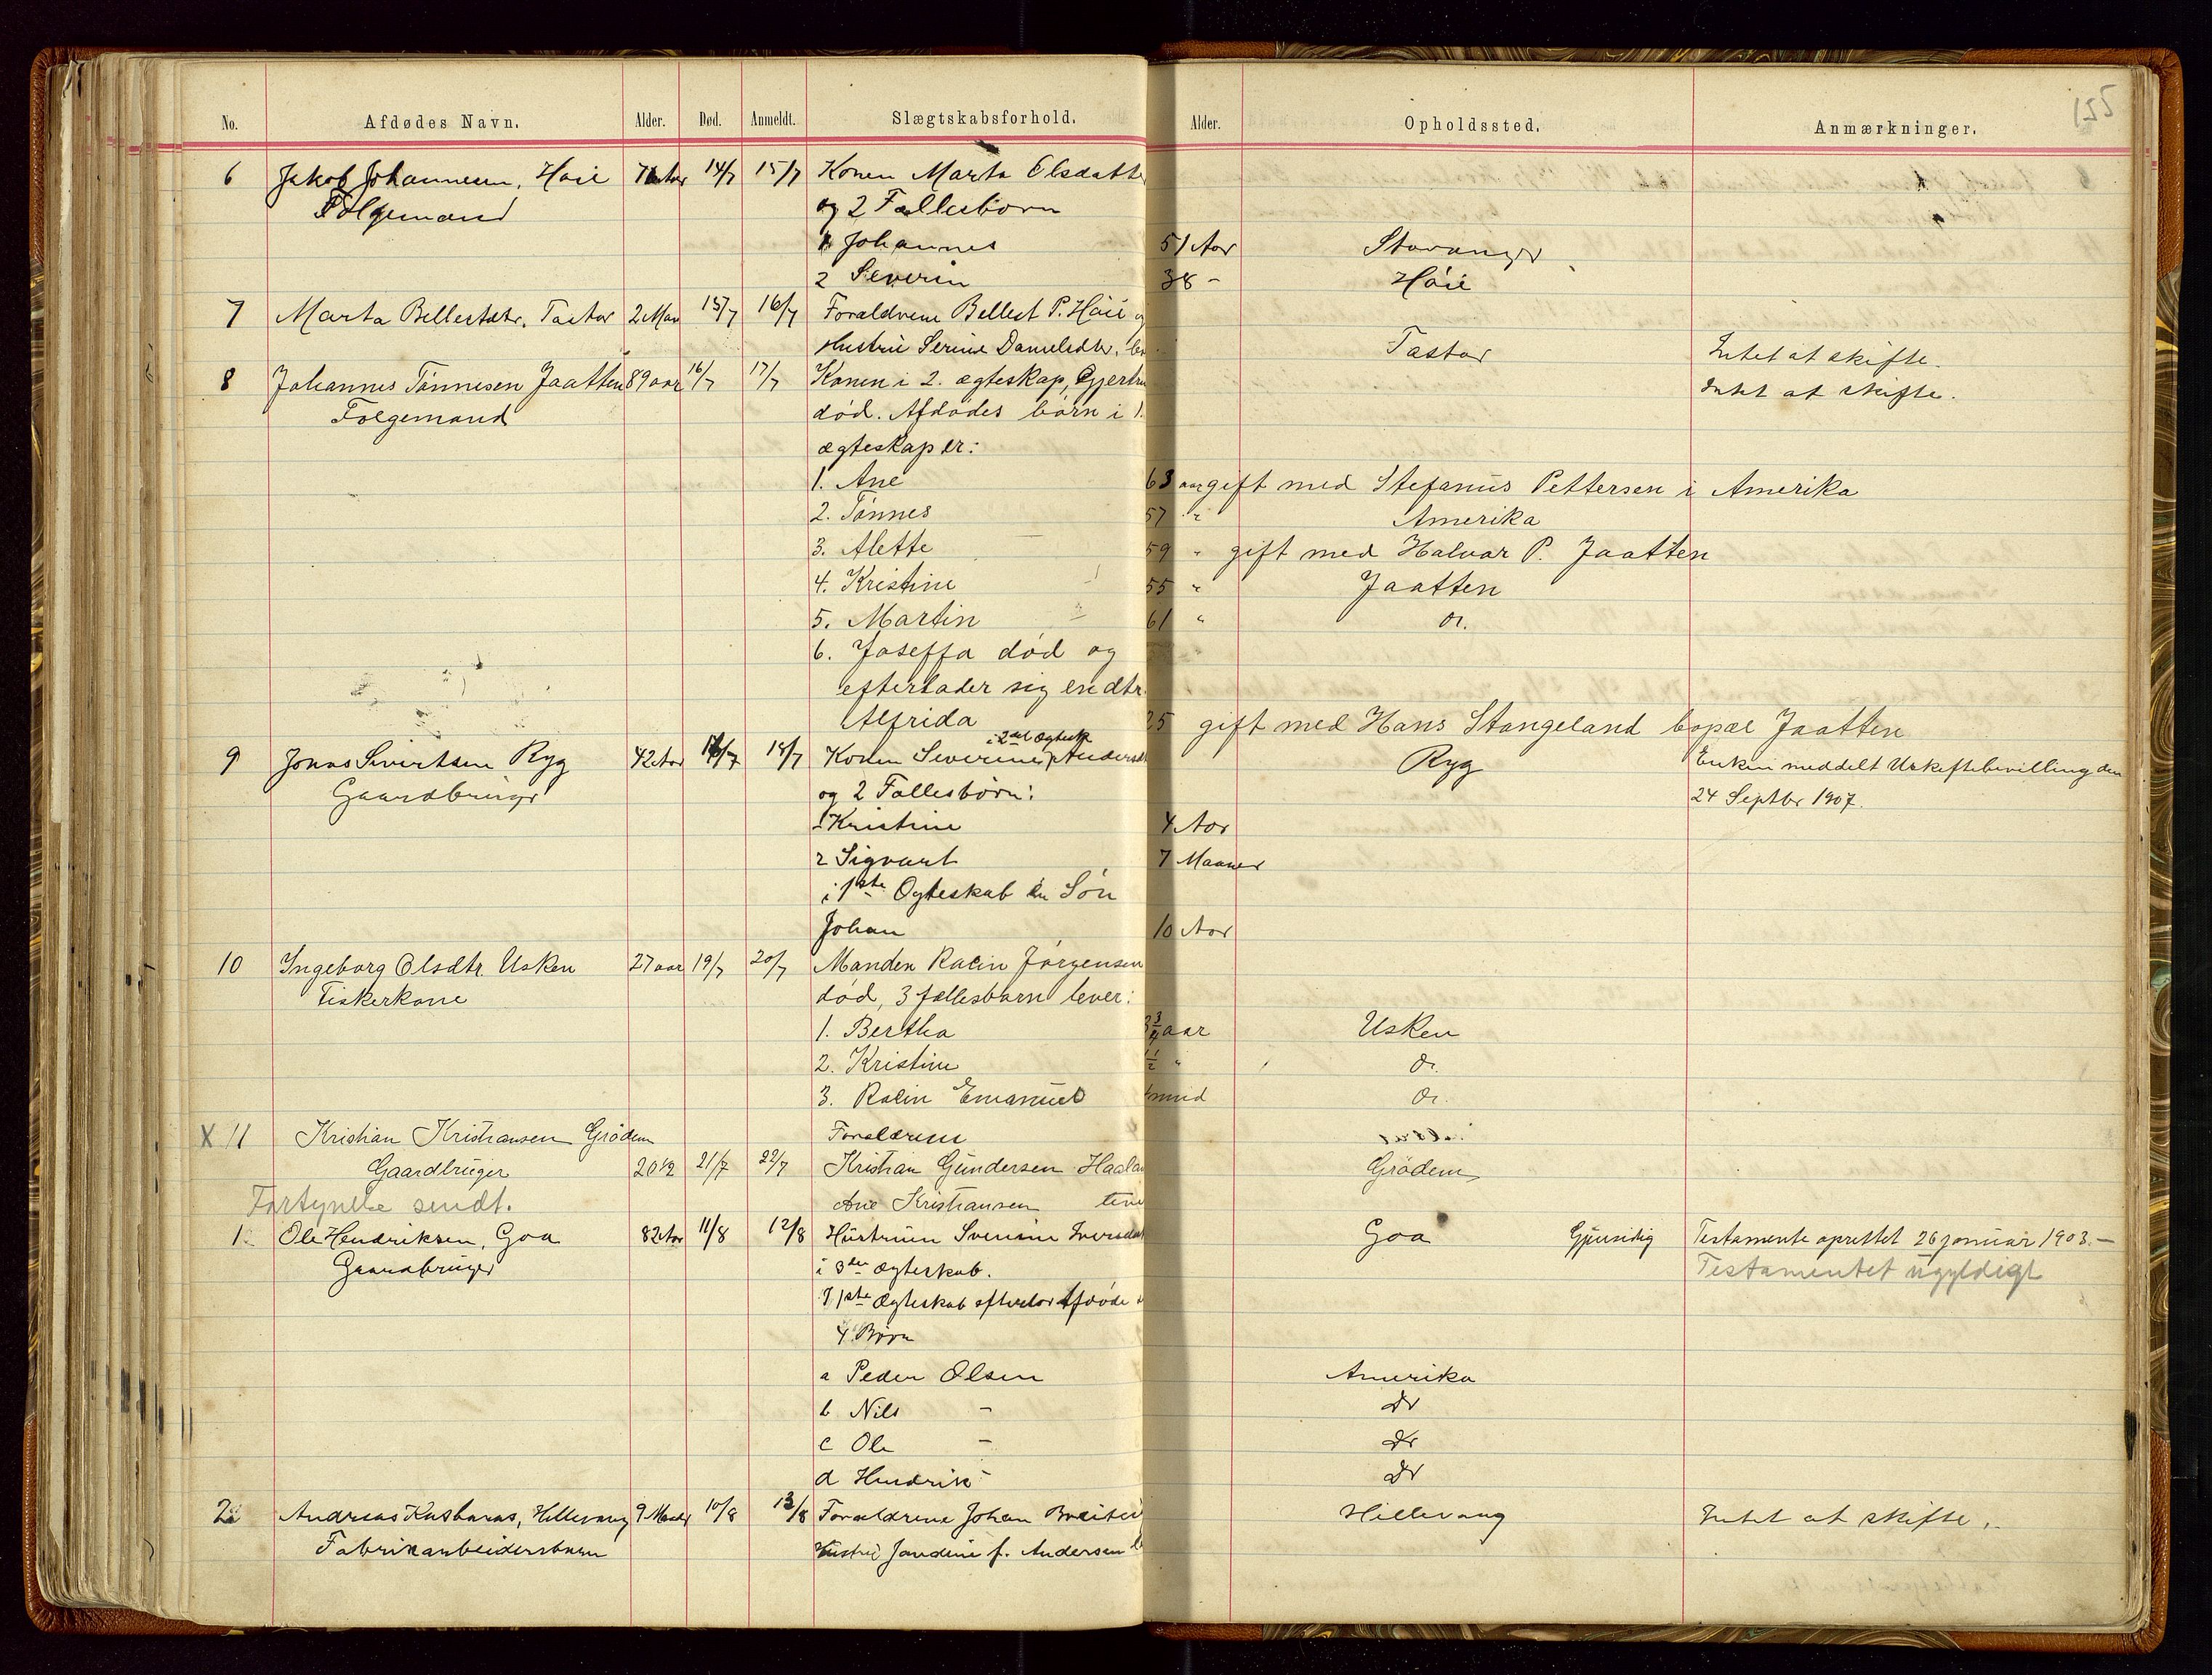 No. Afdødes Navn. Alder. Død. Anmeldt. Slægtskabsforhold. Alder. Opholdssted. Anmærkninger.
155
6 Jakob Johannesen, Høie 14/7 15/7 Konen Marta Elsdatte
Folgemand og 2 Fællesbørn
1 Johannes 51 Aar Stavanger
2 Severin 38 - Høie
7 Marta Bellestdtr. Tastar 2 Man 15/7 16/7 Forældrene Bellest P. Høie o
Hustru Serine Danielsdtr. Tastar Intet at skifte.
8 Johannes Tønnesen Jaatten 89 aar 16/7 17/7 Konen i 2. ægteskap, Gjertru Intet at skifte.
Folgemand død. Afdødes børn i 1.
ægteskap er:
1. Ane 63 aar gift med Stefanus Pettersen i Amerika
2. Tønnes 57 " Amerika
3. Alette 59 " gift med Halvar P. Jaatten
4. Kristine 55 " Jaatten
5. Martin 61 " do.
6. Joseffa død og
efterlader sig en dtr.
Alfrida 25 gift med Hans Stangeland bopæl Jaatten
9 Jonas Sivertsen Ryg 42 Aar 18/7 Konen Severine i 2det Ægtesk Andersd Ryg Enken meddelt Uskiftebevilling den
Gaardbruger og 2 Fællesbørn: 24 Septbr 1907.
1 Kristine 4 Aar
2 Sigvart 7 Maaner
i 1ste Ægteskab en Søn
Johan 10 Aar
10 Ingeborg Olsdtr. Usken 27 aar 19/7 20/7 Manden Racin Jørgensen
Fiskerkone død, 3 fællesbarn lever:
1. Bertha 3/4 aar Usken
2. Kristine 1/2 " do.
3. Racin Emanuel mnd do.
X 11 Kristian Kristiansen Grødem Forældrene
Gaardbruger 20 1/2 21/7 22/7 Kristian Gundersen Haalan Grødem
Fortynelse sendt. Ane Kristiansen
1 Ole Hendriksen, Goa 82 Aar 11/8 12/8 Hustruen Severine Iversdat Goa Gjensidig Testamente oprettet 26 januar 1903.-
Gaardbruger i 3die Ægteskab. Testamentet ugyldigt
I 1ste Ægteskab efterlod Afdøde
4 Børn
a Peder Olsen Amerika
b Nils - do
c Ole - do
d Hendrik - do
2 Andreas Kasbaras, Hillevang 9 Maaned 10/8 13/8 Forældrene Johan Hillevang Intet at skifte.
Fabrikarbeidersbarn Hustru Jandine f. Andersen